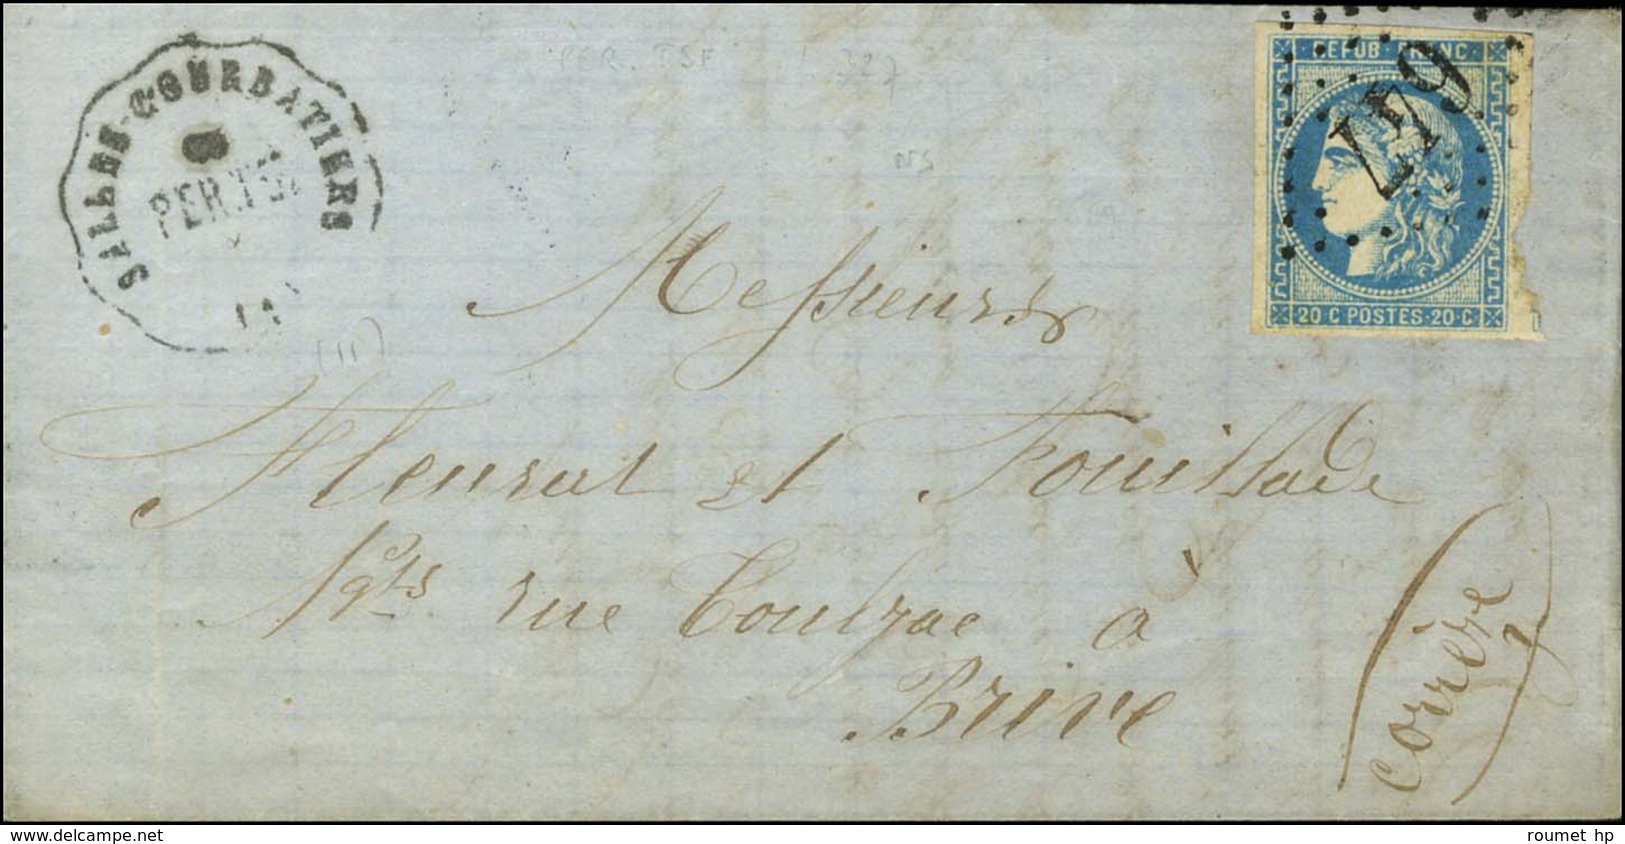 SALLES-COURBATIERS
PER. TSF 327
REPUB. FRANC.
479
20 C POSTES 20 C
(11)
Messieurs
Fleurat et Fouillade
Ngts rue Toulzac à
Brive
(Corrèze)
www.delcampe.net
roumet hp